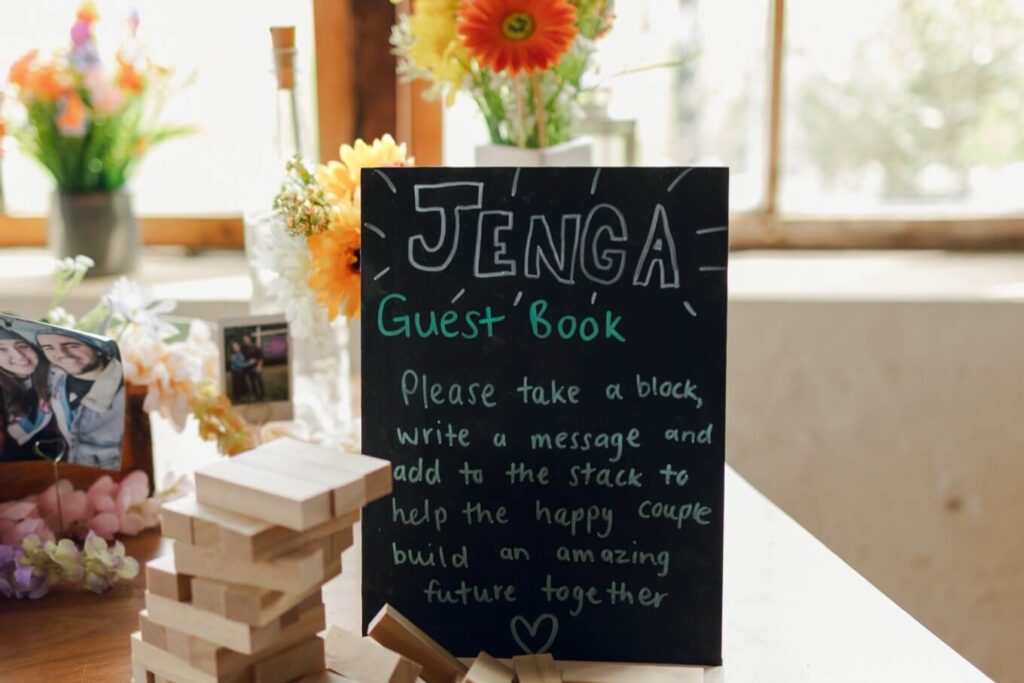 JENGA
Guest Book
Please take a block,
write a message and
add to the stack to
help the happy couple
build an amazing
future together